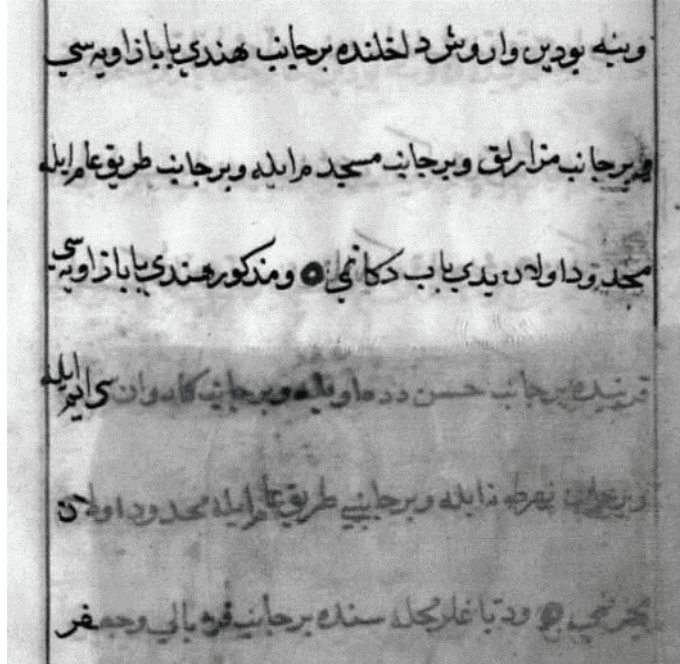 وینه بودین واروش داخلنده بر جانب هندي بابا زاويه سي
بر جانب مزارلق وبر جانب مسجد مرايله وبر جانب طريق عام ايله
محدود اولان يدي باب دكانمي ومذكور هندي بابا زاويه سي
قربنده بر جانب حسن دده وبر جانب كاروان سرايم ايله
وبر جانب ايله وبر جانبي طريق عام ايله محدود اولان
محله سنده بر جانب قره بالي وجعفر